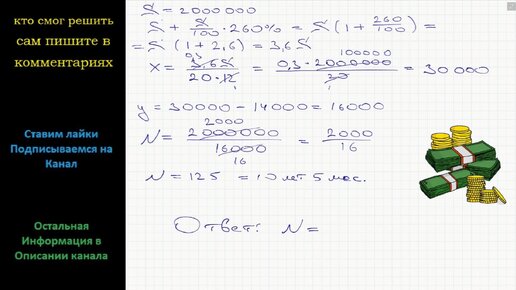 кто смог решить
сам пишите в
комментариях
Ставим лайки
Подписываемся на
Канал
Остальная
Информация в
Описании канала
S = 2000 000
S + S/100 · 260% = S (1 + 260/100) =
= S (1 + 2,6) = 3,6 S
x = 0,3 3,6 S / 20 · 12 1 = 0,3 · 2000 000 100000 / 20 1 = 30 000
y = 30000 - 14000 = 16000
N = 2000 2000000 / 16000 16 = 2000 / 16
N = 125 = 10 лет 5 мес.
Ответ: N =